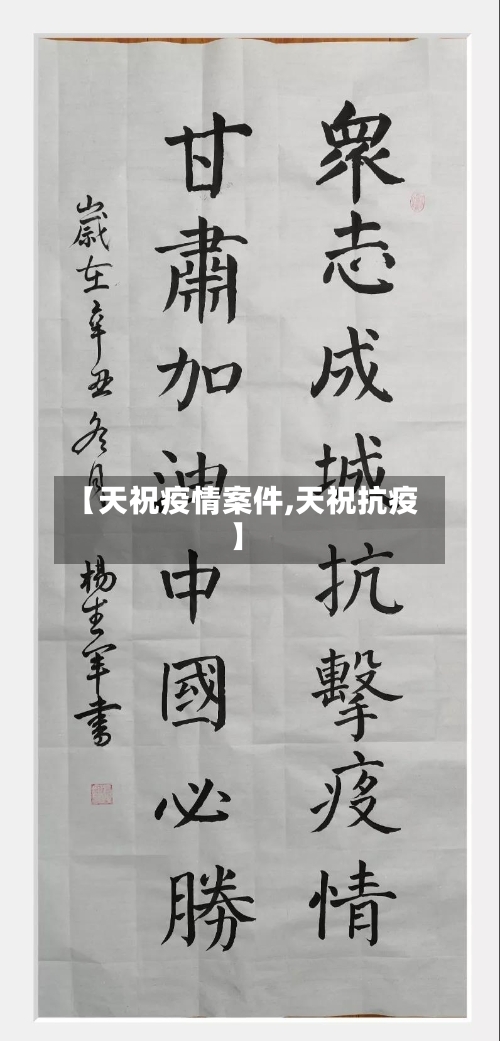 眾志成城抗擊疫情
甘肅加油中國必勝
歲在辛丑冬月
楊生軍書
【天祝疫情案件,天祝抗疫
】